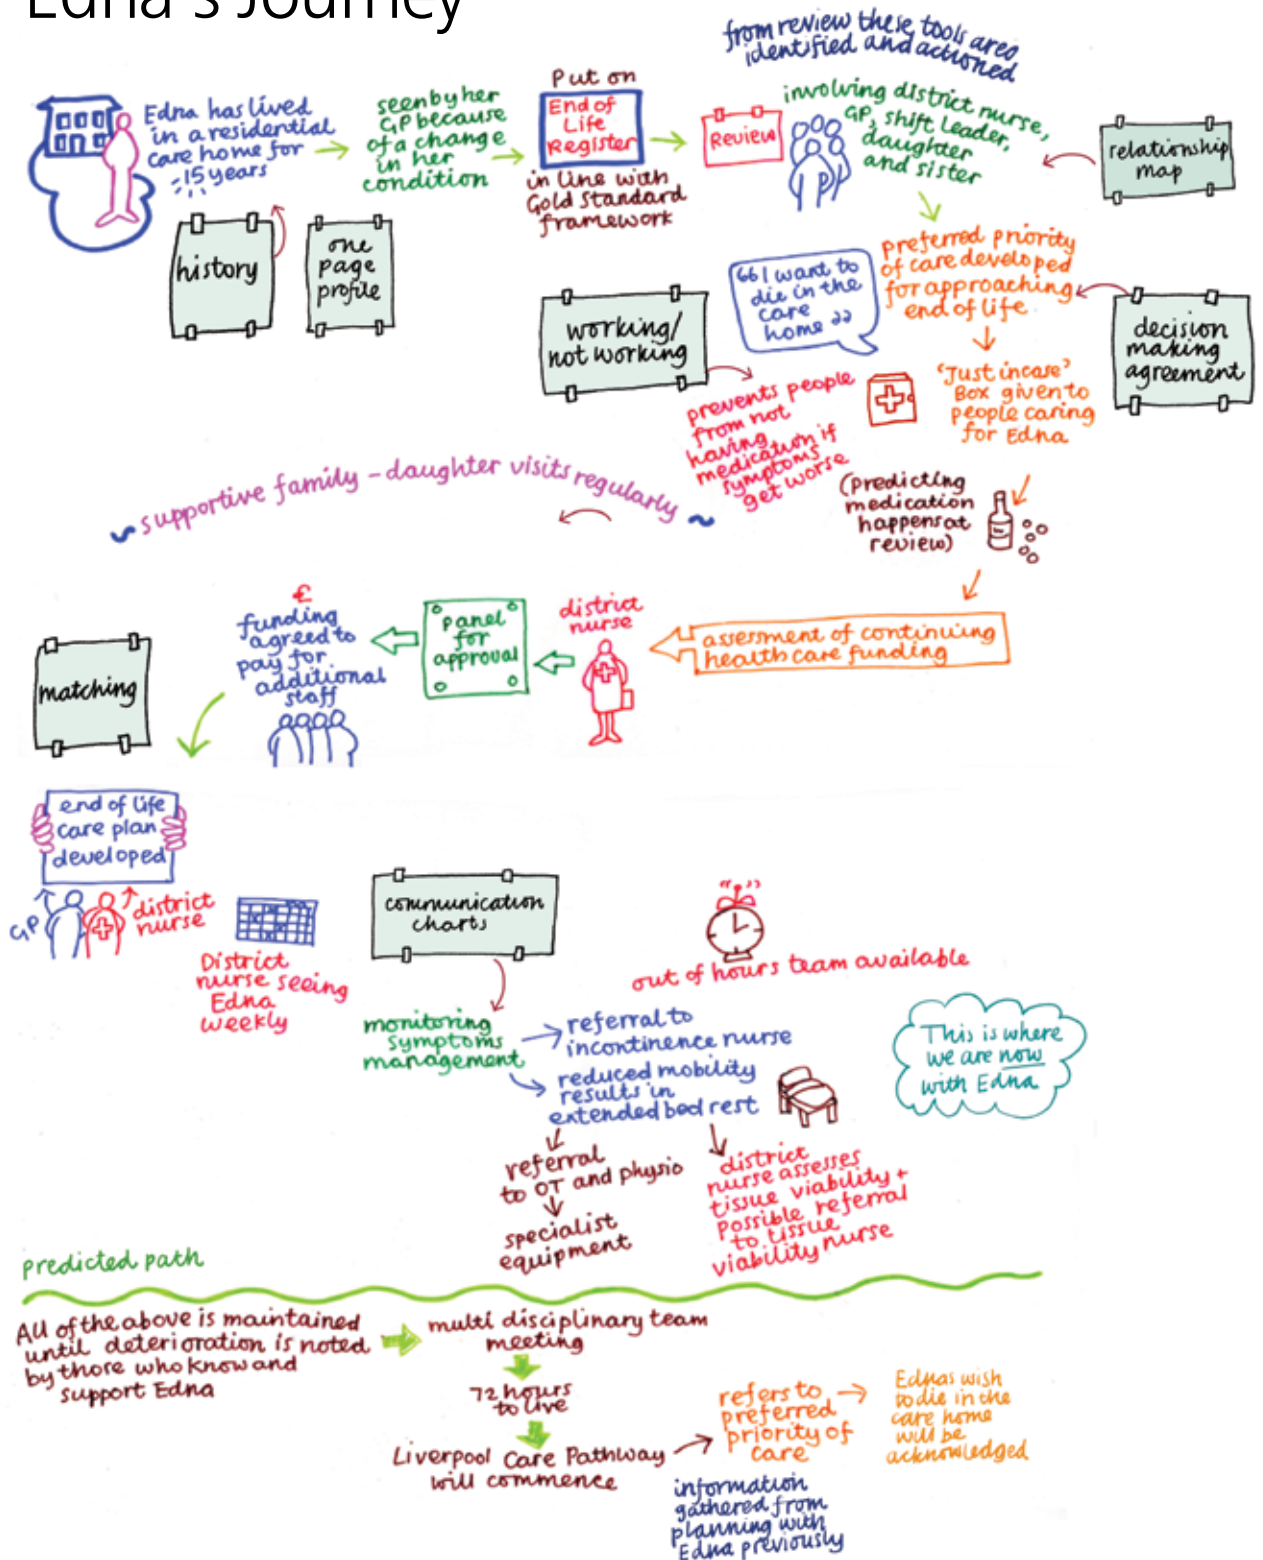 Edna's Journey
from review these tools area
identified and actioned
Edna has lived
in a residential
care home for
15 years
seen by her
GP because
of a change
in her
condition
Put on
End of
Life
Register
in line with
Gold Standard
framework
Review
involving district nurse,
GP, shift leader,
daughter
and sister
relationship
map
history
one
page
profile
working/
not working
"I want to
die in the
care
home"
preferred priority
of care developed
for approaching
end of life
decision
making
agreement
prevents people
from not
having
medication if
symptoms
get worse
'Just incase'
Box given to
people caring
for Edna
(predicting
medication
happens at
review)
supportive family - daughter visits regularly
assessment of continuing
health care funding
district
nurse
panel
for
approval
£
funding
agreed to
pay for
additional
staff
matching
end of life
care plan
developed
GP
district
nurse
District
nurse seeing
Edna
weekly
communication
charts
out of hours team available
monitoring
symptoms
management
referral to
incontinence nurse
reduced mobility
results in
extended bed rest
This is where
we are now
with Edna
referral
to OT and physio
specialist
equipment
district
nurse assesses
tissue viability +
possible referral
to tissue
viability nurse
predicted path
All of the above is maintained
until deterioration is noted
by those who know and
support Edna
multi disciplinary team
meeting
72 hours
to live
Liverpool Care Pathway
will commence
refers to
preferred
priority of
care
Ednas wish
to die in the
care home
will be
acknowledged
information
gathered from
planning with
Edna previously